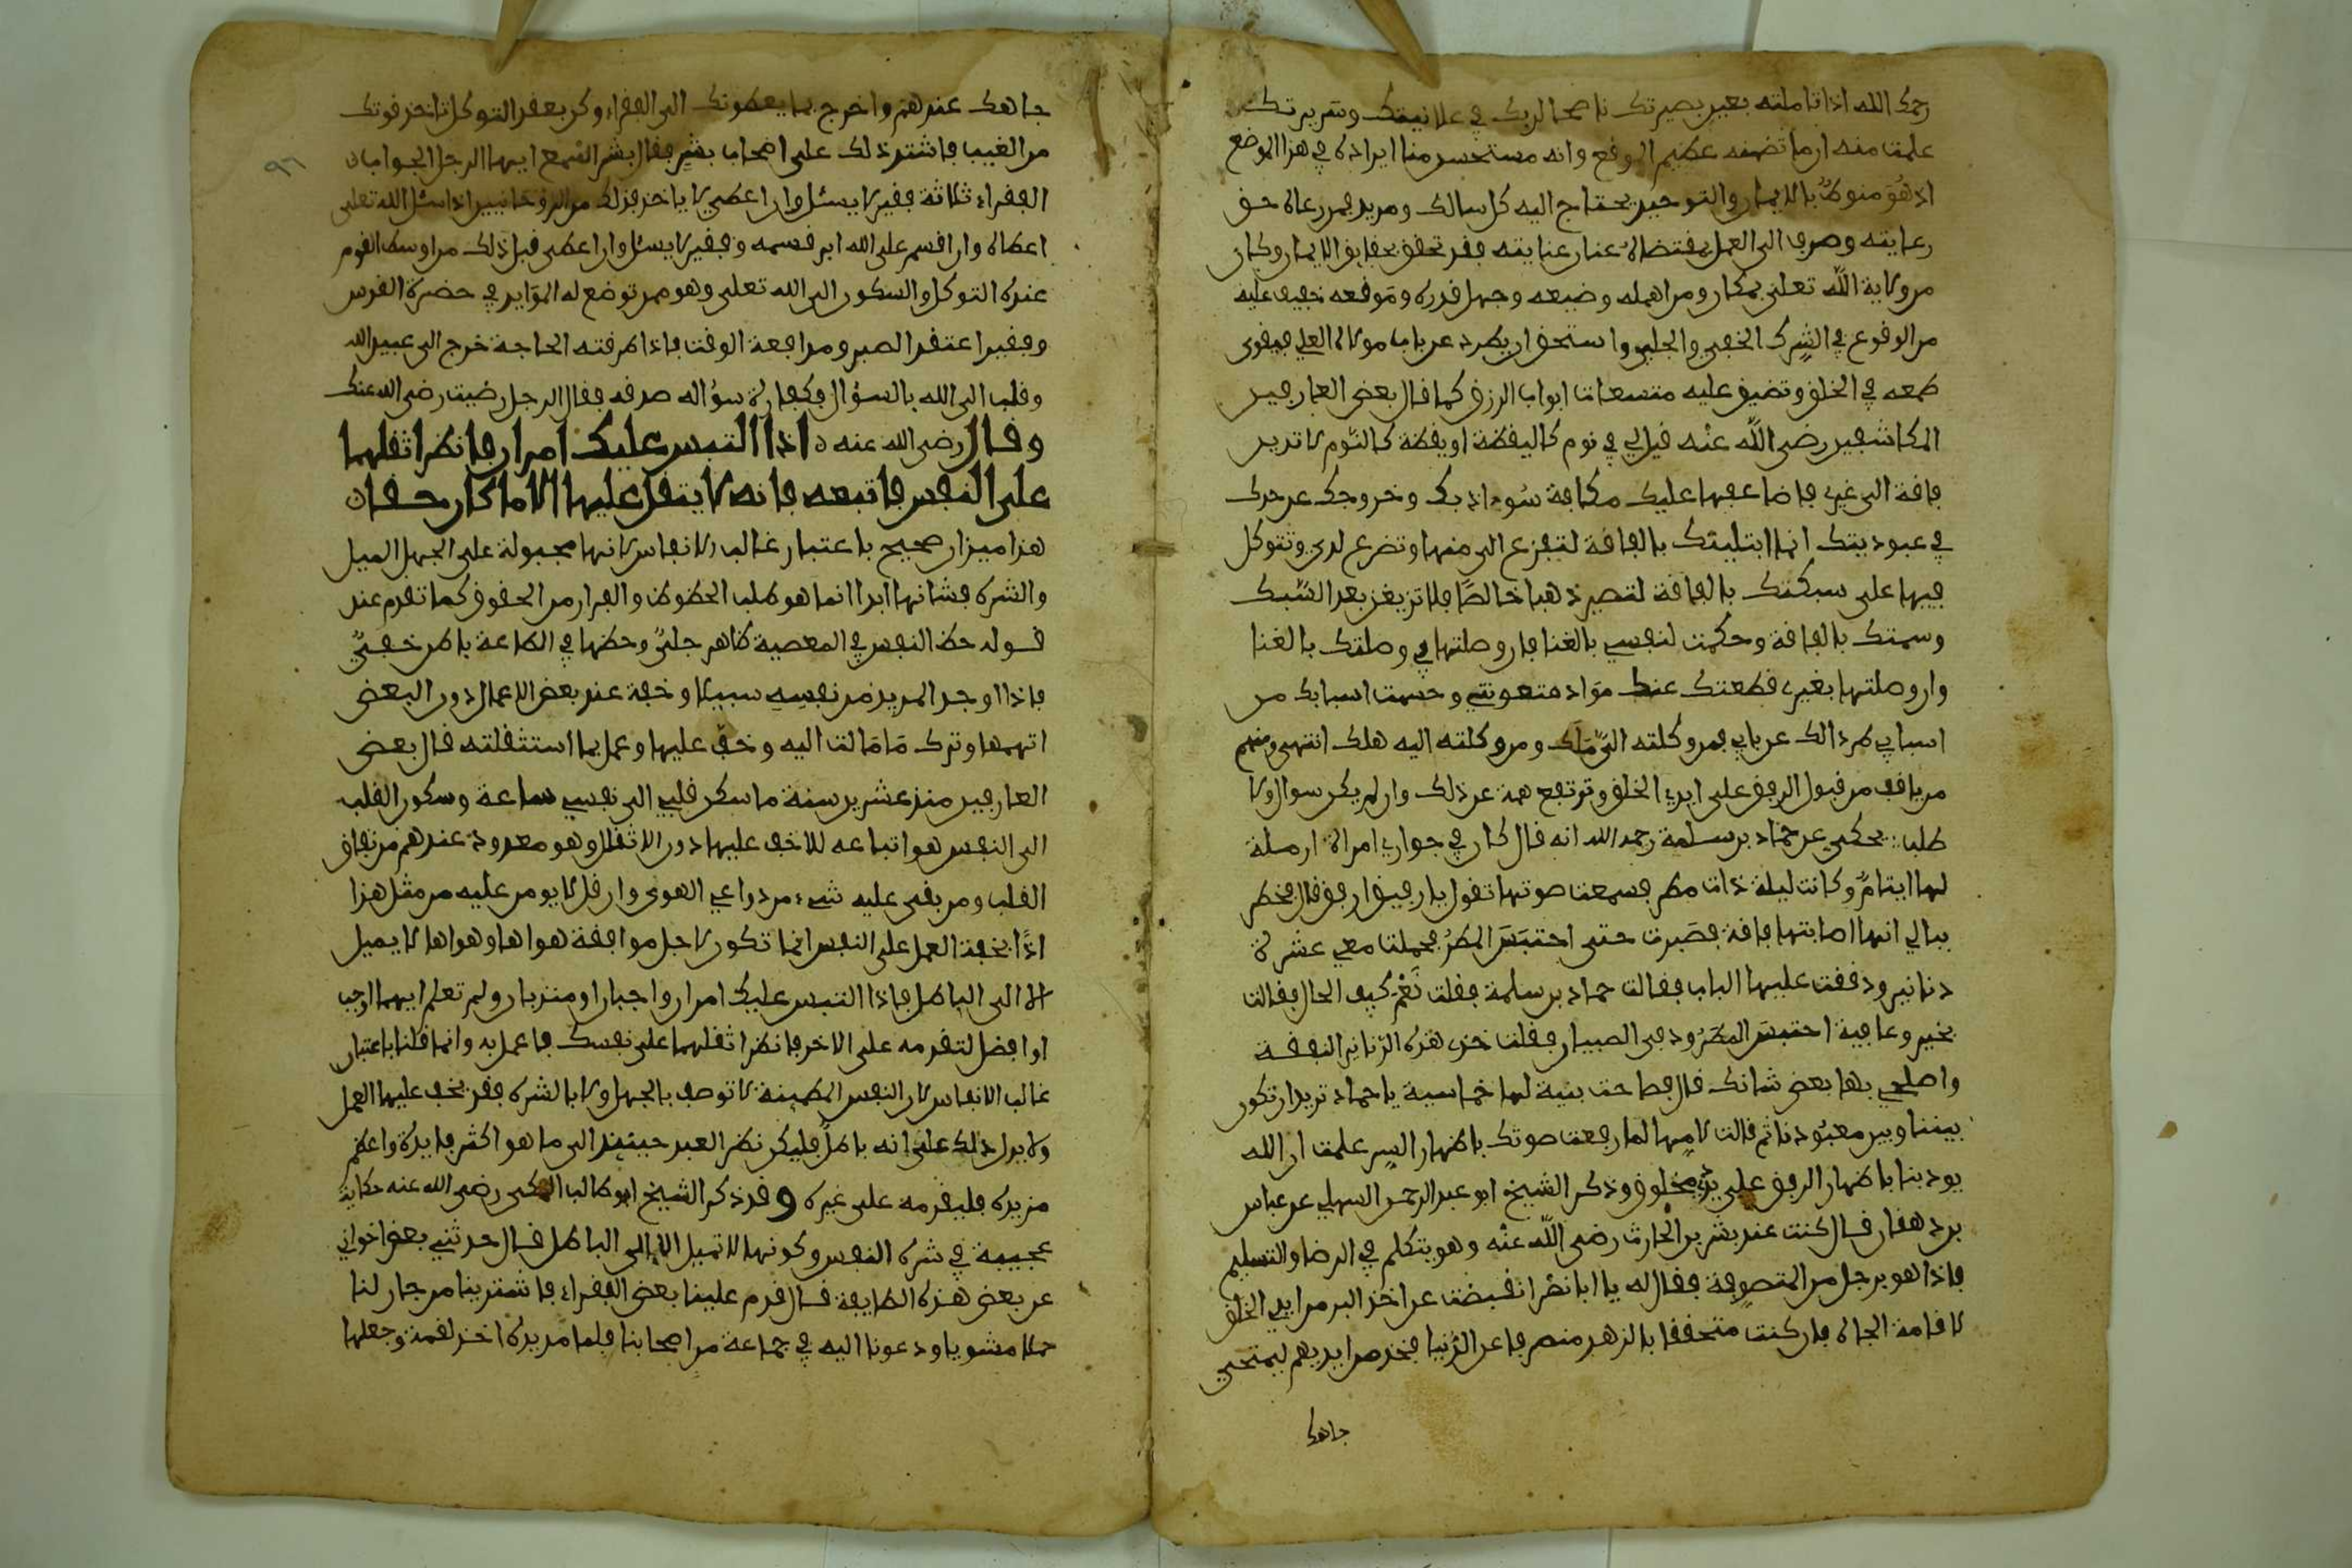 رحمك الله اذا تاملته بعين بصيرتك ناصحا لربك في علانيتك وسريرتك
علمت منه ان ما تضمنه عظيم الموقع وانه مستحسن منا ايراده في هذا الموضع
اذ هو منوط بالايمان والتوحيد يحتاج اليه كل سالك ومريد فمن رعاه حق
رعايته وصرف الى العمل بمقتضاه عنان عنايته فقد تحقق بحقايق الايمان وكان
من ولاية الله تعلى بمكان ومن اهمله وضيعه وجهل قدره وموقعه خيف عليه
من الوقوع في الشرك الخفي والجلي واستحق ان يطرد عن باب مولاه العلي فيقوى
طمعه في الخلق وتضيق عليه متسعات ابواب الرزق كما قال بعض العارفين
المكاشفين رضى الله عنه قيل لي في نوم كاليقظة او يقظة كالنوم لا تبدين
فاقة الى غيري فاضاعفها عليك مكافة سوء ادبك وخروجك عن حدك
في عبوديتك انما ابتليتك بالفاقة لتفزع الى منها وتضرع لدى وتتوكل
فيها على سبكتك بالفاقة لتصير ذهبا خالصا فلا تزيغن بعد السبك
وسمتك بالفاقة وحكمت لنفسي بالغنا فان وصلتها بي وصلتك بالغنا
وان وصلتها بغيري قطعتك عنك مواد معونتي وحسمت اسبابك من
اسبابي طردا لك عن بابي فمن وكلته الي ملك ومن وكلته اليه هلك انتهى ومنهم
من يانف من قبول الرفق على ايدي الخلق وترتفع همته عن ذلك وان لم يكن سوال ولا
طلب يحكى عن حماد بن سلمة رحمه الله انه قال كان في جواري امراة ارملة
لها ايتام وكانت ليلة ذات مطر فسمعت صوتها تقول يا رفيق ارفق قال فخطر
ببالي انها اصابتها فاقة فصبرت حتى احتبس المطر فحملت معي عشرة
دنانير ودققت عليها الباب فقالت حماد بن سلمة فقلت نعم كيف الحال فقالت
بخير وعافية احتبس المطر ودفى الصبيان فقلت خذى هذه الدنانير النفقة
واصلحي بها بعض شانك قال فصاحت بنية لها خماسية يا حماد تريد ان تكون
بيننا وبين معبودنا ثم قالت لامها لما رفعت صوتك باظهار السر علمت ان الله
يودبنا باظهار الرفق على يدي مخلوق وذكر الشيخ ابو عبد الرحمن السهلي عن عباس
بن دهقان قال كنت عند بشر بن الحارث رضى الله عنه وهو يتكلم في الرضا والتسليم
فاذا هو برجل من المتصوفة فقال له يا ابا نصر انقبضت عن اخذ البر من ايدي الخلق
لاقامة الجاه فان كنت متحققا بالزهد منصرفا عن الدنيا فخذ من ايديهم ليمتحي
جاهك
جاهك عندهم واخرج بما يعطونك الى الفقراء وكن بعقد التوكل تاخذ قوتك
من الغيب فاشتد ذلك على اصحاب بشر فقال بشر اسمع ايها الرجل الجواب
الفقراء ثلاثة فقير لا يسئل وان اعطي لا ياخذ فذلك من الروحانيين اذا سئل الله تعلى
اعطاه وان اقسم على الله ابر قسمه وفقير لا يسئل وان اعطى قبل ذلك من اوسط القوم
عنده التوكل والسكون الى الله تعلى وهو ممن توضع له الموايد في حضرة القدس
وفقير اعتقد الصبر ومدافعة الوقت فاذا طرقته الحاجة خرج الى عبيد الله
وقلبه الى الله بالسؤال فكفارة سؤاله صدقه فقال الرجل رضيت رضى الله عنك
وقال رضى الله عنه اذا التبس عليك امران فانظر اثقلهما
على النفس فاتبعه فانه لا يثقل عليها الا ما كان حقا
هذا ميزان صحيح باعتبار غالب الانفاس لانها مجبولة على الجهل الميل
والشره فشانها ابدا انما هو طلب الحظوظ والفرار من الحقوق كما تقدم عند
قوله حظ النفس في المعصية ظاهر جلي وحظها في الطاعة باطن خفي
فاذا وجد المريد من نفسه سبيلا وخفة عند بعض الاعمال دون البعض
اتهمها وترك ما مالت اليه وخف عليها وعمل بما استثقلته قال بعض
العارفين منذ عشرين سنة ما سكن قلبي الى نفسي ساعة وسكون القلب
الى النفس هو اتباعه للاخف عليها دون الاثقل وهو معدود عندهم من نفاق
القلب ومن بقى عليه شيء من دواعي الهوى وان قل لا يومن عليه من مثل هذا
اذا بخفة العمل على النفس انما تكون لاجل موافقة هواها وهواها لا يميل
الا الى الباطل فاذا التبس عليك امران واجبان او مندوبان ولم تعلم ايهما اوجب
او افضل لتقدمه على الاخر فانظر اثقلهما على نفسك فاعمل به وانما قلنا باعتبار
غالب الانفاس لان النفس المطمينة لا توصف بالجهل ولا بالشره فقد يخف عليها العمل
ولا يدل ذلك على انه باطل فليكن نظر العبد حينئذ الى ما هو اكثر فايدة واعظم
مزيدة فليقدمه على غيره وقد ذكر الشيخ ابو طالب المكى رضى الله عنه حكاية
عجيبة في شره النفس وكونها لا تميل الا الى الباطل قال حدثني بعض اخواني
عن بعض هذه الطايفة قال قدم علينا بعض الفقراء فاشترينا من جار لنا
حملا مشويا ودعونا اليه في جماعة من اصحابنا فلما مد يده اخذ لقمة وجعلها